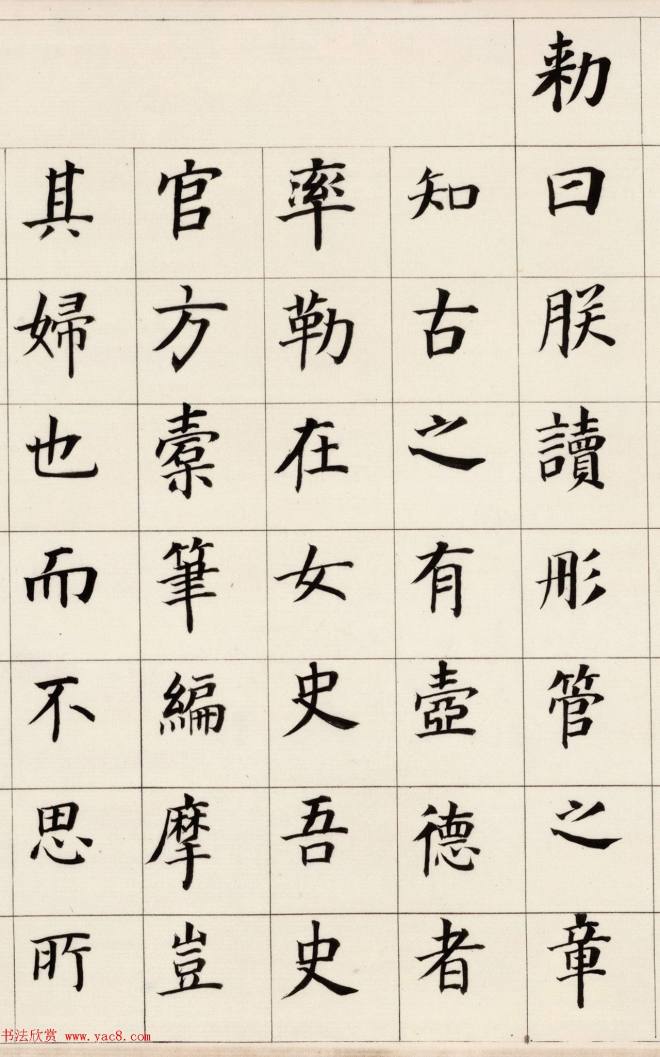 勑曰朕讀彤管之章
知古之有壼德者
率勒在女史吾史
官方橐筆編摩豈
其婦也而不思所
书法欣赏 www.yac8.com